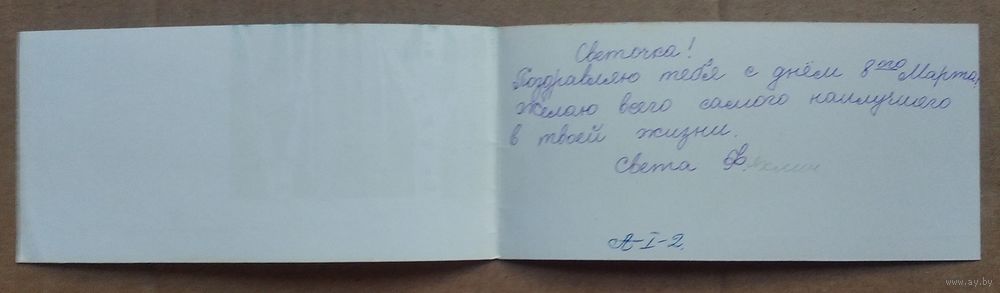 Светочка!
Поздравляю тебя с днём 8го Марта,
желаю всего самого наилучшего
в твоей жизни.
Света Ф.
А-I-2.
www.ay.by